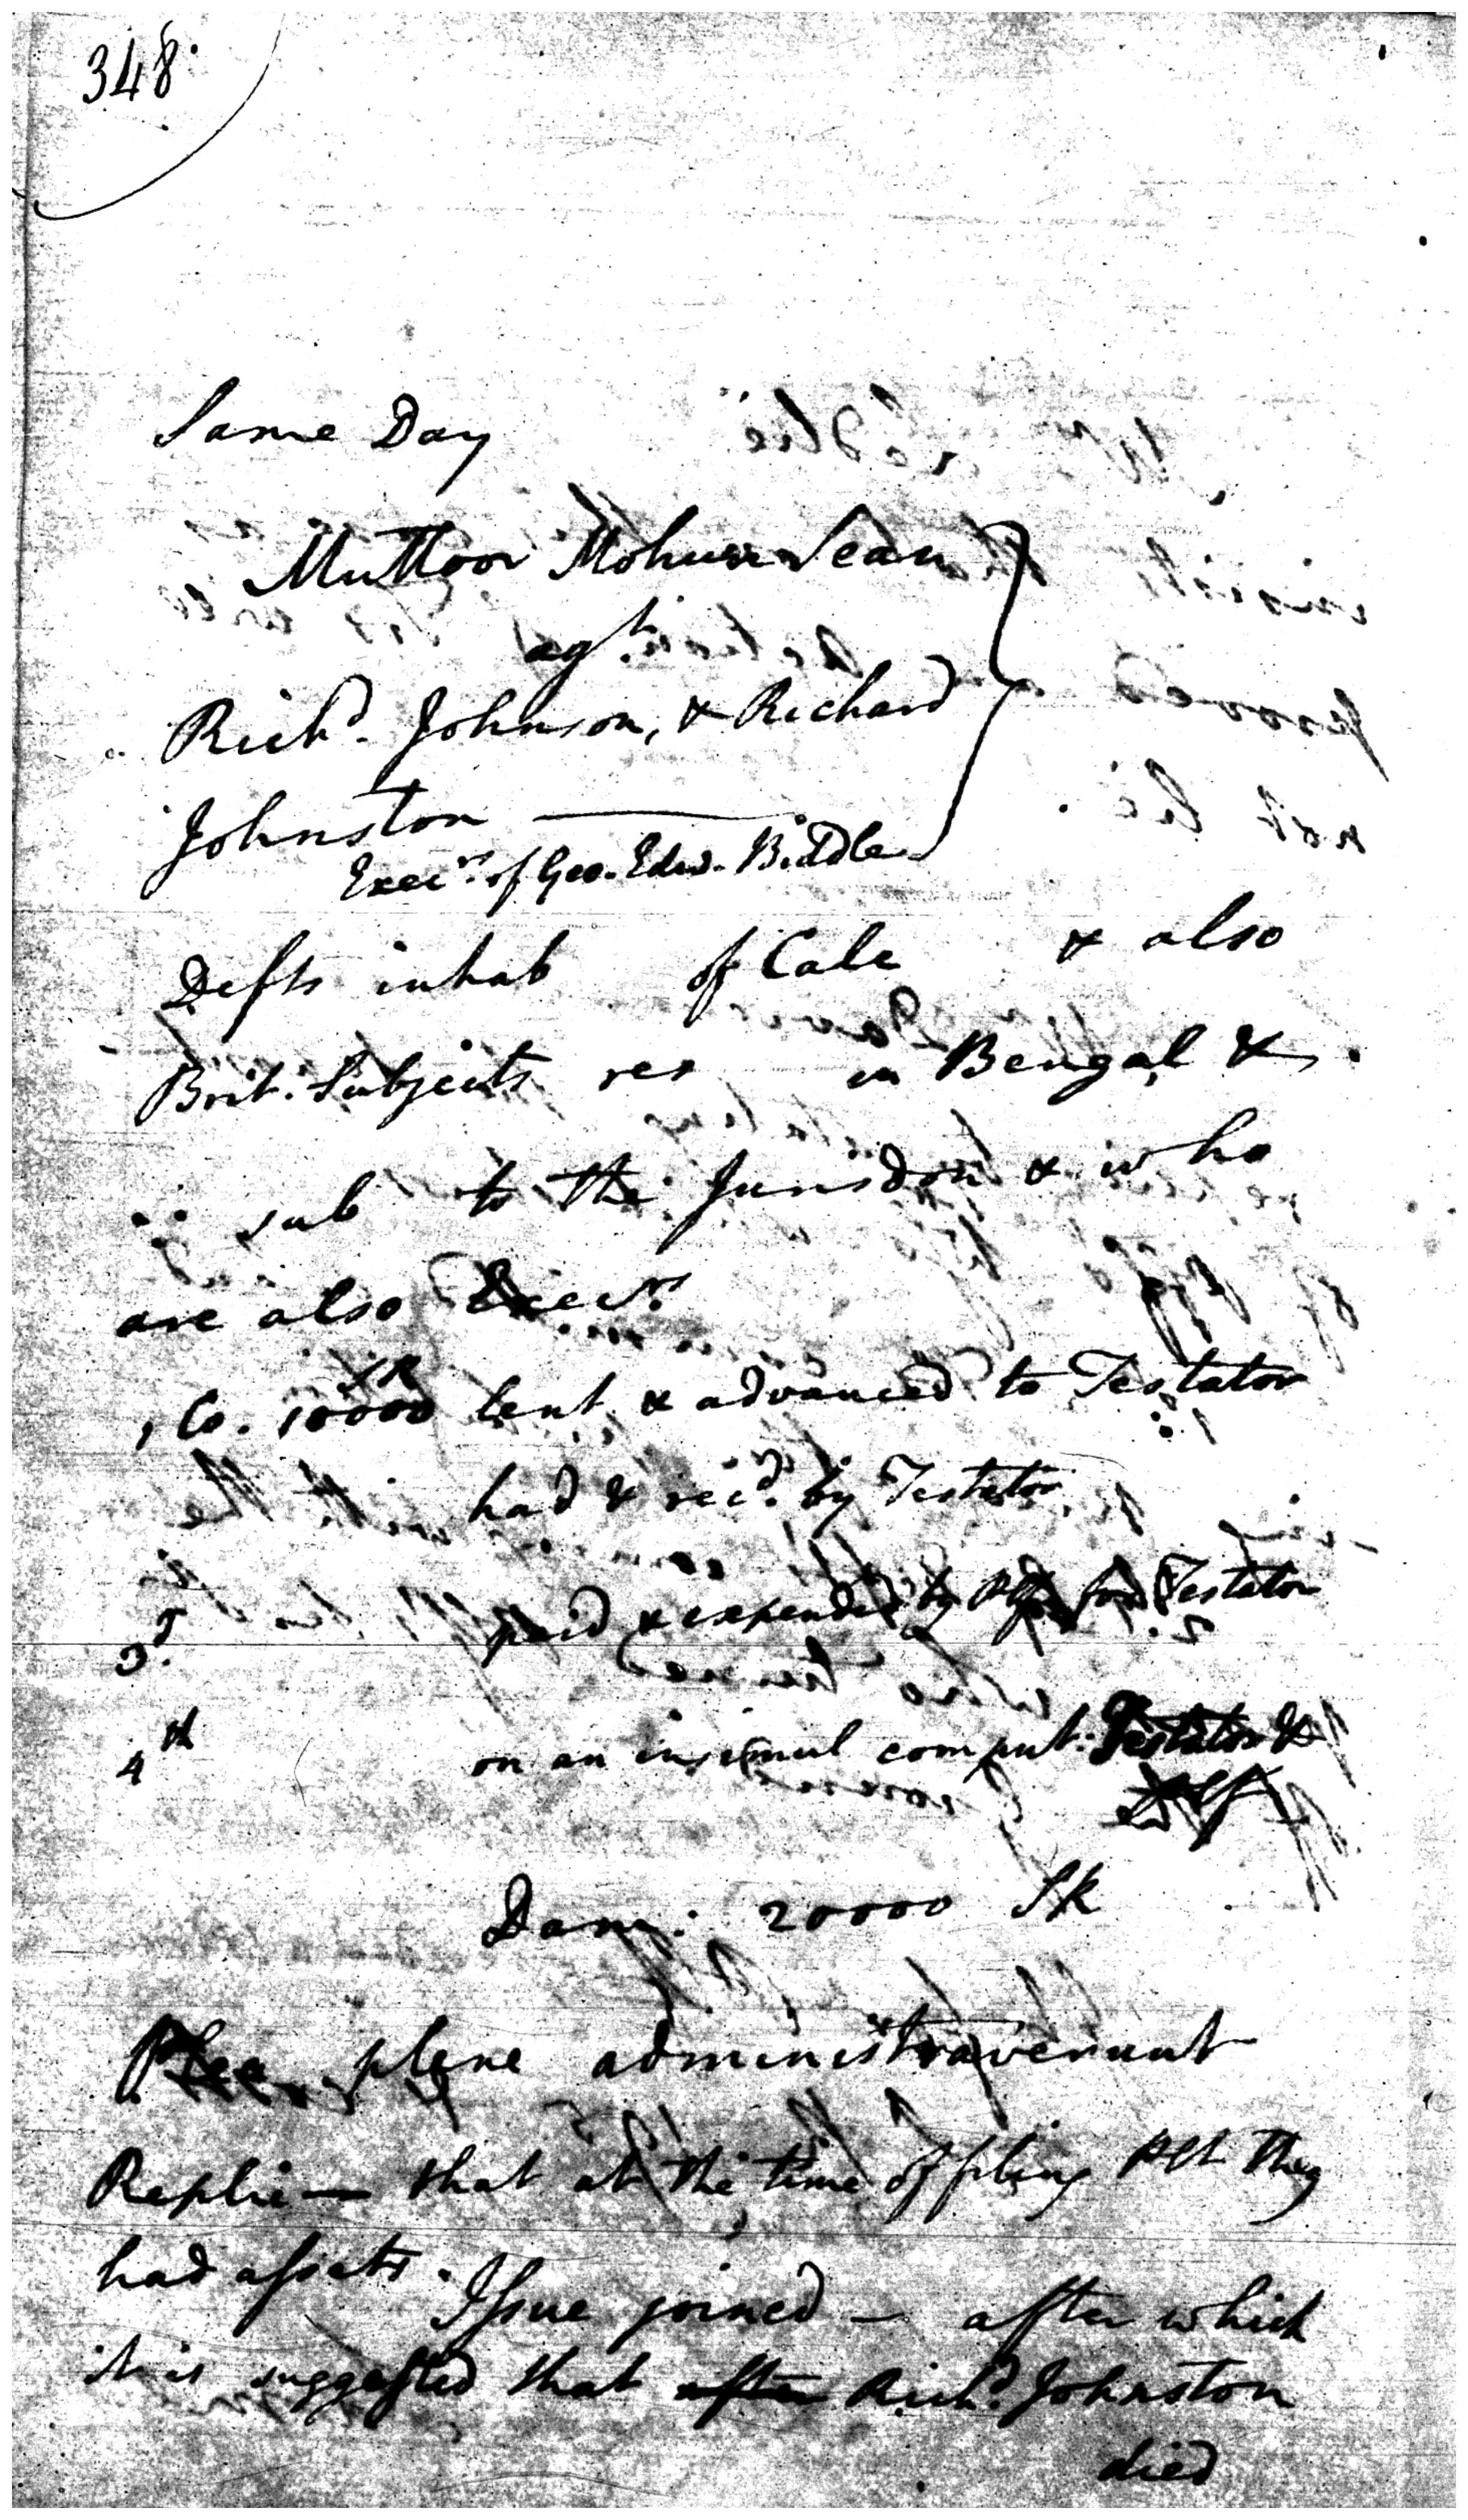 348.
Same Day
Muttoor Mohun Sean
agt.
Richd. Johnson, & Richard
Johnston
Execrs. of Geo. Edw. Biddle
Defts inhab of Calc & also
Brit. Subjects res in Bengal &
sub to the Jurisdon & who
are also Execrs.
1 Co. 10000 SR lent & advanced to Testator
had & recd. by Testator
3d. paid & expended by Plf for Testator
4th on an insimul comput: Testator &
Plf
Dam: 20000 SR
Plea plene administraverunt
Replie — that at the time of filing Plt they
had assets.
Issue joined — after which
it is suggested that after Richd. Johnston
died